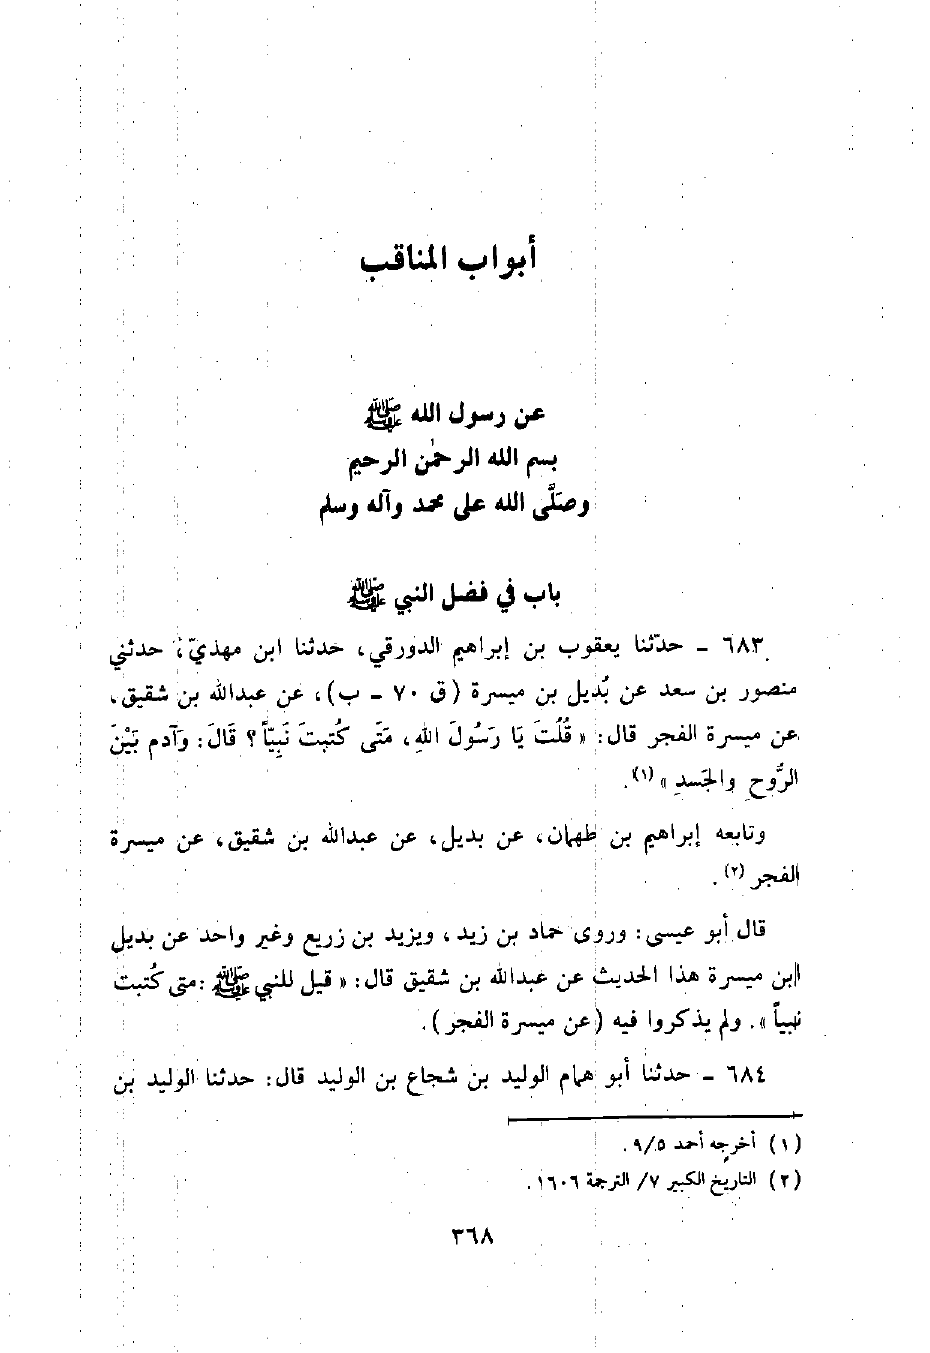 أبواب المناقب
عن رسول الله ﷺ
بسم الله الرحمٰن الرحيم
وصَلَّى الله على محمد وآله وسلم
باب في فضل النبي ﷺ
٦٨٣ - حدّثنا يعقوب بن إبراهيم الدورقي، حدثنا ابن مهديّ، حدثني
منصور بن سعد عن بُديل بن ميسرة (ق ٧٠ - ب)، عن عبدالله بن شقيق،
عن ميسرة الفجر قال: « قُلْتُ يَا رَسُولَ اللهِ، مَتَى كُتِبتَ نَبِيّاً؟ قَالَ: وَآدم بَيْنَ
الرُّوحِ والجَسدِ » (١).
وتابعه إبراهيم بن طهمان، عن بديل، عن عبدالله بن شقيق، عن ميسرة
الفجر (٢).
قال أبو عيسى: وروى حماد بن زيد، ويزيد بن زريع وغير واحد عن بديل
ابن ميسرة هذا الحديث عن عبدالله بن شقيق قال: « قيل للنبي ﷺ :متى كُتبت
نبياً ». ولم يذكروا فيه (عن ميسرة الفجر).
٦٨٤ - حدثنا أبو همام الوليد بن شجاع بن الوليد قال: حدثنا الوليد بن
(١) أخرجه أحمد ٩/٥.
(٢) التاريخ الكبير ٧/ الترجمة ١٦٠٦.
٣٦٨